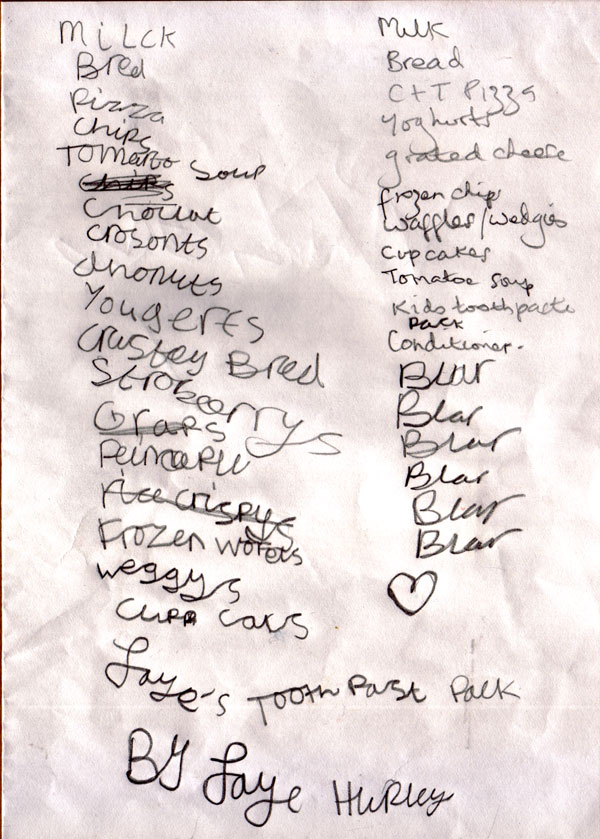 MiLCK
Bred
Pizza
Chips
TOMaTO Soup
Chips
Choclat
Crosonts
dhonuts
Yougerts
Crustey Bred
Stroberrys
Graps
Peinapll
Ricecrispys
Frozen wofels
weggys
Cupp Caks
Faye's Tooth Past Pack
BY Faye HURley
Milk
Bread
C+T Pizza
Yoghurts
grated cheese
frozen chips
Waffles/wedgies
Cupcakes
Tomatoe soup
Kids toothpaste
Pack
Conditioner.
Blar
Blar
Blar
Blar
Blar
Blar